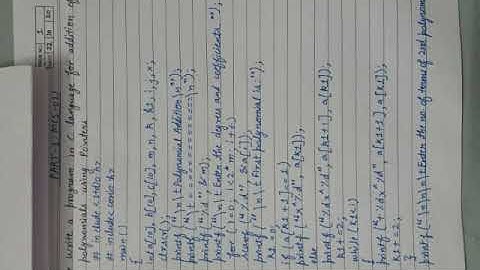 PART-1 MCS-021
write a program in C language for addition of
polynomials using Pointers
# include <stdio.h>
# include <conio.h>
main ()
{
int a[10], b[10], c[10], m, n, k, k1, i, j, x;
clrscr();
printf ("\n\t Polynomial Addition\n");
printf ("\t ===============\n");
printf ("\n\t Enter the degrees and coefficients:");
for (i=0; i<2*m; i++)
scanf ("%d", &a[i]);
printf ("\n\t First polynomial is:");
k1=0;
if (a[k1+1]==1)
printf ("x^%d", a[k1]);
else
printf ("%dx^%d", a[k1+1], a[k1]);
k1+=2;
while (k1<i)
{
printf ("+%dx^%d", a[k1+1], a[k1]);
k1+=2;
}
printf ("\n\n\n\t Enter the no. of terms of 2nd polynom